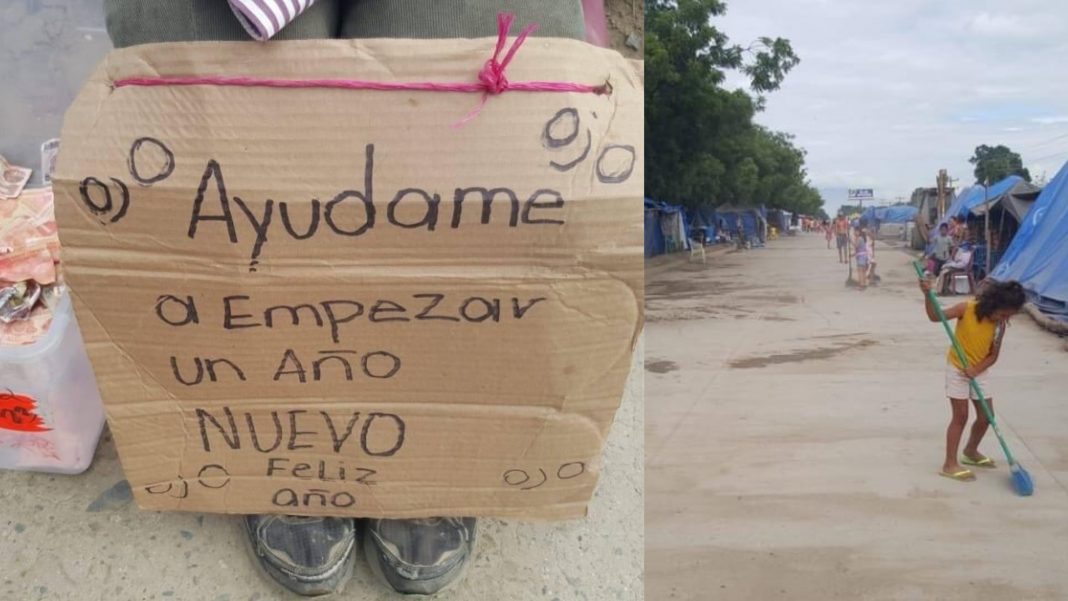 Ayudame
a Empezar
un Año
NUEVO
Feliz
año